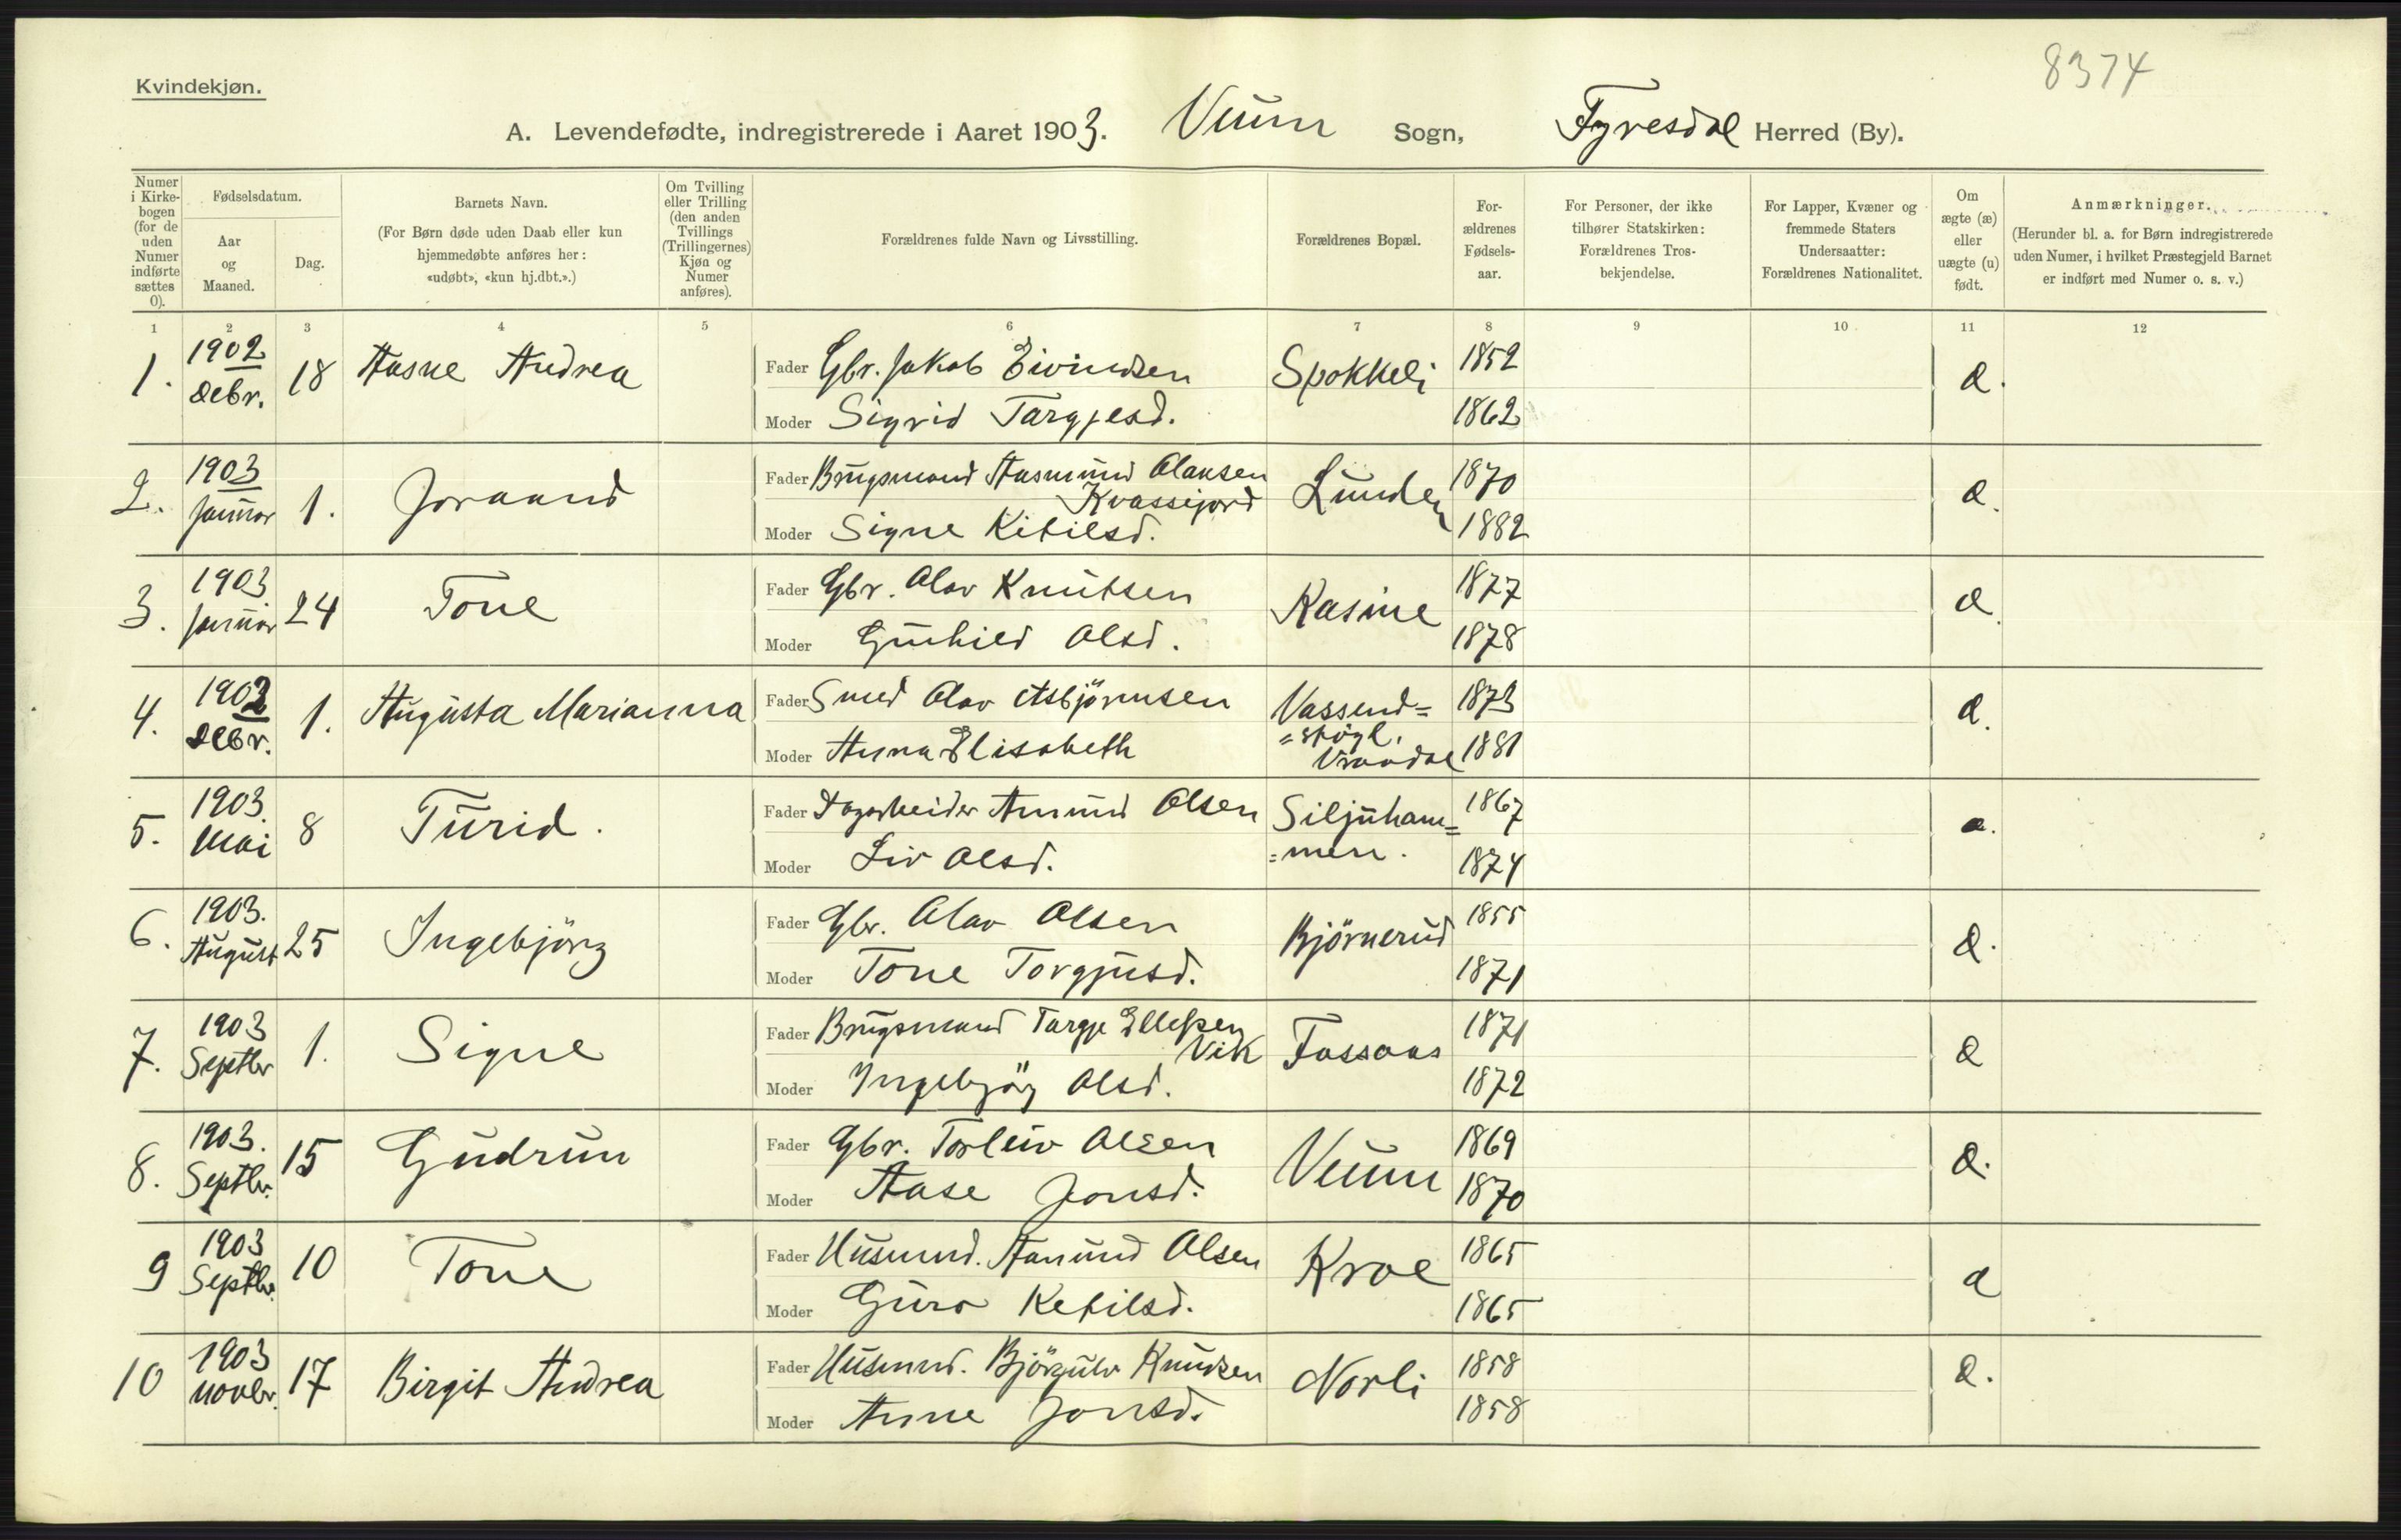 8374
Kvindekjøn.
A. Levendefødte, indregistrerede i Aaret 1903. Veum Sogn, Fyresdal Herred (By).
Numer i Kirkebogen (for de uden Numer indførte sættes 0).
Fødselsdatum.
Aar og Maaned.
Dag.
Barnets Navn.
(For Børn døde uden Daab eller kun hjemmedøbte anføres her: «udøbt», «kun hj.dbt.».)
Om Tvilling eller Trilling (den anden Tvillings (Trillingernes) Kjøn og Numer anføres).
Forældrenes fulde Navn og Livsstilling.
Forældrenes Bopæl.
For-ældrenes Fødsels-aar.
For Personer, der ikke tilhører Statskirken: Forældrenes Tros-bekjendelse.
For Lapper, Kvæner og fremmede Staters Undersaatter: Forældrenes Nationalitet.
Om ægte (æ) eller uægte (u) født.
Anmærkninger.
(Herunder bl. a. for Børn indregistrerede uden Numer, i hvilket Præstegjeld Barnet er indført med Numer o. s. v.)
1 2 3 4 5 6 7 8 9 10 11 12
1. 1902 Debr. 18 Aasne Andrea Fader Gbr. Jakob Eivindsen Spokkeli 1852 æ.
Moder Sigrid Targjesd. 1862
2. 1903 Januar 1. Joraand Fader Brugsmand Aasmund Olavsen Kvassejord Lunden 1870 æ.
Moder Signe Ketilsd. 1882
3. 1903 Januar 24 Tone Fader Gbr. Olav Knutsen Rasine 1877 æ.
Moder Gunhild Olsd. 1878
4. 1902 Debr. 1. Augusta Marianna Fader Smed Olav Asbjörnsen Vassend= 1873 æ.
Moder Anna Elisabeth =stögl. Vraadal 1881
5. 1903. Mai 8 Turid. Fader Dagarbeider Amund Olsen Siljuham= 1867 æ.
Moder Liv Olsd. =men. 1874
6. 1903. August 25 Ingebjörg Fader Gbr. Olav Olsen Björnerud 1855 æ.
Moder Tone Torgjusd. 1871
7. 1903 Septbr 1. Signe Fader Brugsmand Targje Ellefsen Vik Fossaas 1871 æ
Moder Ingebjörg Olsd. 1872
8. 1903. Septbr. 15 Gudrun Fader Gbr. Torleiv Olsen Veum 1869 æ.
Moder Aase Jonsd. 1870
9 1903 Septbr. 10 Tone Fader Husmnd. Aanund Olsen Kroe 1865 æ
Moder Guro Ketilsd. 1865
10 1903 Novbr. 17 Birgit Andrea Fader Husmnd. Björgulv Knudsen Norli 1858 æ.
Moder Anne Jonsd. 1858